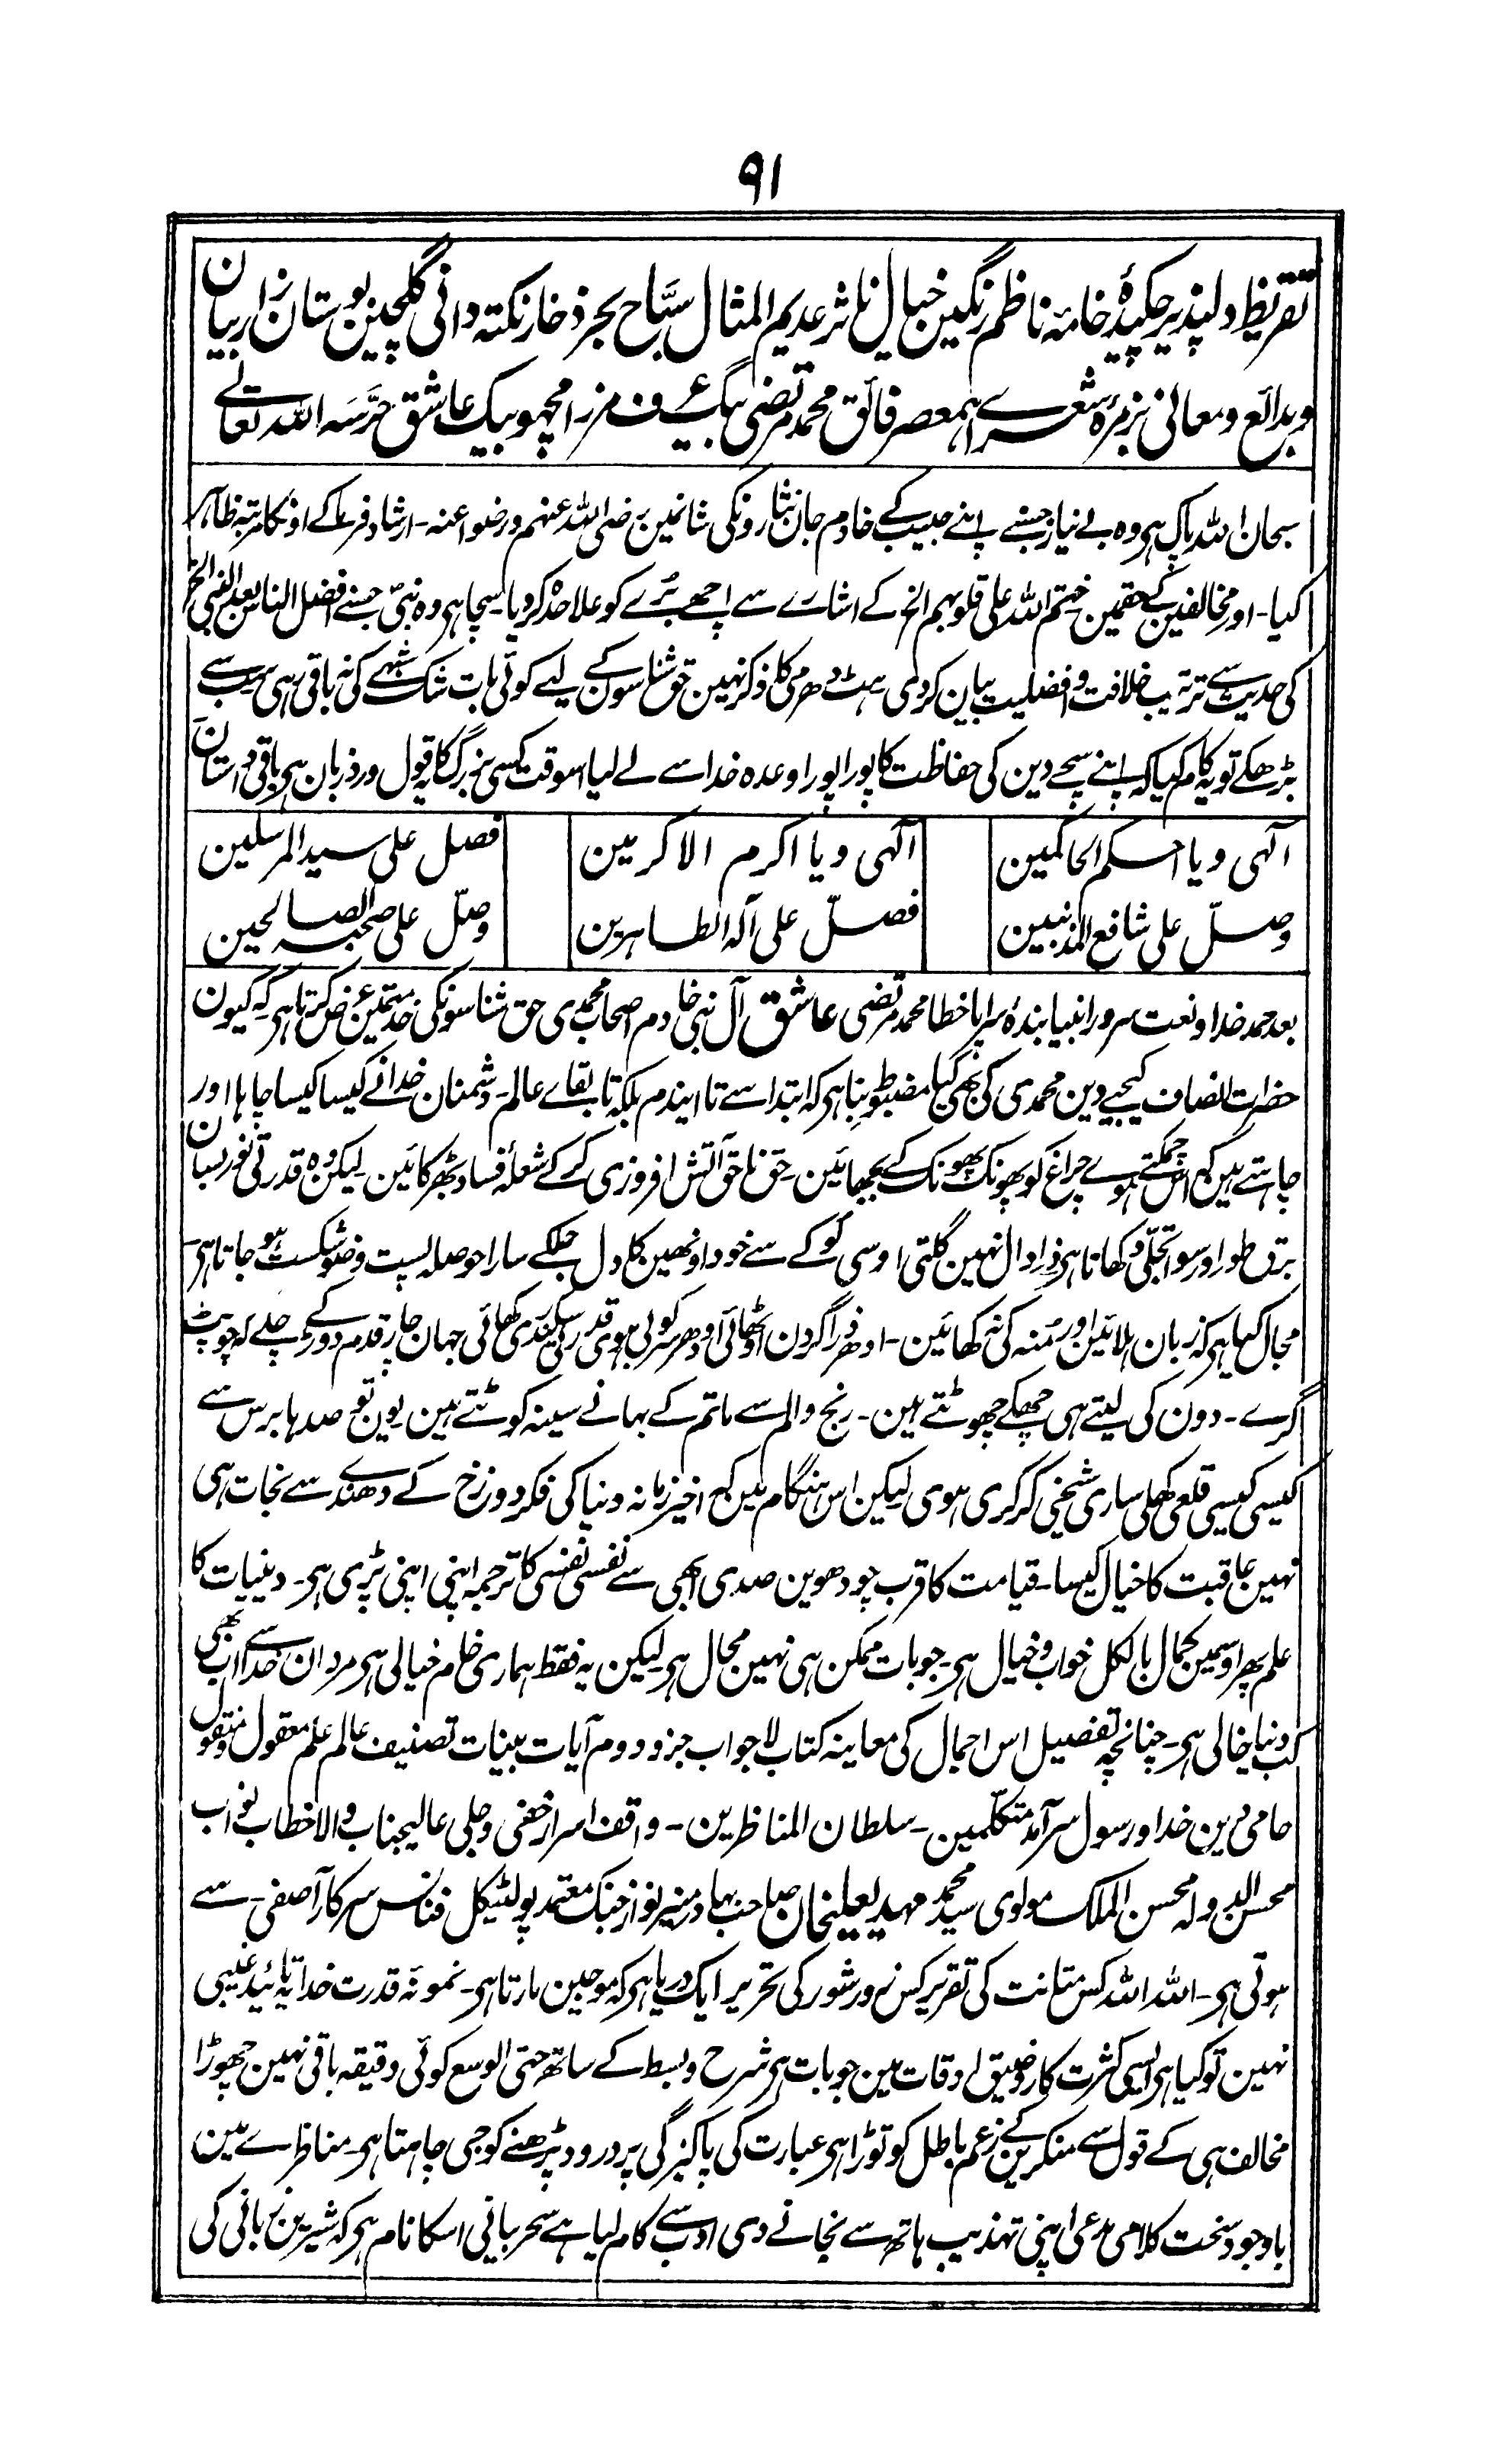 ۹۱
تقریظ دلپذیر چکیدۂ خامۂ ناظم رنگین خیال ناثر عدیم المثال سبّاح بحر ذخار نکتہ دانی گلچین بوستان زار بیان
وبدائع ومعانی بزمرۂ شعراے ہمعصر فائق محمد مرتضی بیگ عرف مرزا مچھو بیگ عاشق حرَّسہ اللہ تعالے
سبحان اللہ پاک ہی وہ بے نیاز جسنے اپنے حبیب کے خادم جان نثارونکی شانمین رضی اللہ عنہم ورضوا عنہ۔ ارشاد فرما کے اونکا مرتبہ ظاہر
کیا۔ اور مخالفین کے حقمین ختم اللہ علی قلوبہم الخ کے اشارے سے اچھے بُرے کو علاحدہ کر دیا۔ سچا ہی وہ نبیؐ جسنے افضل الناس بعد النبی الخ
کی حدیث سے ترتیب خلافت وافضلیت بیان کردی ہٹ دھرمی کا ذکر نہین حق شناسون کے لیے کوئی بات شک شبہے کی نہ باقی رہی سب سے
بڑھکے تو یہ کام کیا کہ اپنے سچے دین کی حفاظت کا پورا پورا وعدہ خدا سے لے لیا اسوقت کسی بزرگ کا یہ قول ورد زبان ہی باقی داستان
آلہی و یا احسکم الحاکمین آلہی و یا اکرم الاکرمین فصل علی سید المرسلین
وصلّ علی شافع المذنبین فصلّ علی آلہ الطاہرین وصلّ علی صحبہ الصالحین
بعد حمد خدا ونعت سرور انبیا بندۂ سراپا خطا محمد مرتضی عاشق آل نبی خادم اصحاب محمدی حق شناسونکی خدمتمین عرض کرتا ہی کہ کیون
حضرات انصاف کیجیے دین محمدی کی بھی کیا مضبوط بنا ہی کہ ابتدا سے تا ایندم بلکہ تا بقاے عالم۔ دشمنان خدا نے کیسا کیسا چاہا اور
چاہتے ہین کہ اس چمکتے ہوے چراغ کو پھونک پھونک کے بجھائین۔ حق ناحق آتش افروزی کرکے شعلۂ فساد بھڑکائین۔ لیکن وہ قدرتی نور بسان
برق طور اور سوا تجلّی دکھاتا ہی ذرا دال نہین گلتی اوسی لوکے سے خود اونھین کا دل جلکے سارا حوصلہ پست وضو شکست ہو جاتا ہی۔
مجال کیا ہی کہ زبان ہلائین اور مُنہ کی نہ کھائین۔ اودھر ذرا گردن اوٹھائی اودھر سرکوبی ہوی قدر کی سکندری کھائی جہان چار قدم دوڑ کے چلے کہ چوپٹ
گرے۔ دون کی لیتے ہی چھکے چھوٹتے ہین۔ رنج والم سے ماتم کے بہانے سینہ کوٹتے ہین۔ یون تو صدہا برس سے
کیسی کیسی قلعی کھلی ساری شیخی کرکری ہوی لیکن اس ہنگام مین کہ اخیر زمانہ دنیا کی فکر دوزخ کے دھندے سے نجات ہی
نہین عاقبت کا خیال کیسا۔ قیامت کا قرب چودھوین صدی ابھی سے نفسی نفسی کا ترجمہ اپنی اپنی پڑی ہی۔ دینیات کا
علم پھر اوسمین کمال بالکل خواب وخیال ہی۔ جو بات ممکن ہی نہین محال ہی۔ لیکن یہ فقط ہماری خام خیالی ہی مردان خدا سے اب بھی
کب دنیا خالی ہی۔ چنانچہ تفصیل اس اجمال کی معاینہ کتاب لاجواب جزو دوم آیات بینات تصنیف عالم علم معقول ومنقول
حامی دین خدا ورسول سرآمد متکلّمین۔ سلطان المناظرین۔ واقف اسرار خفی وجلی عالیجناب والاخطاب نواب
محسن الدولہ محسن الملک مولوی سید محمد مہدیعلیخان صاحب بہادر منیر نواز جنگ معتمد پولٹیکل فنانس سرکار آصفی۔ سے
ہوتی ہی۔ اللہ اللہ کس متانت کی تقریر کس زور شور کی تحریر ایک دریا ہی کہ موجین مارتا ہی۔ نمونۂ قدرت خدا یہ تائید غیبی
نہین تو کیا ہی ایسی کثرت کار وضیق اوقات مین جو بات ہی شرح وبسط کے ساتھ حتی الوسع کوئی دقیقہ باقی نہین چھوڑا
مخالف ہی کے قول سے منکرین کے زعم باطل کو توڑا ہی عبارت کی پاکیزگی پر درود پڑھنے کو جی چاہتا ہی۔ مناظرے مین
باوجود سخت کلامی مدعی اپنی تہذیب ہاتھ سے نجانے دی ادب سے کام لیا ہے سحر بیانی اسکا نام ہی کہ شیرین زبانی کی